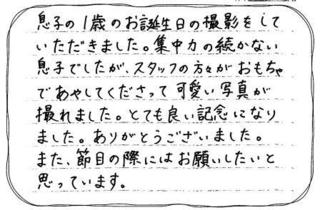 息子の1歳のお誕生日の撮影をして
いただきました。集中力の続かない
息子でしたが、スタッフの方々がおもちゃ
であやしてくださって可愛い写真が
撮れました。とても良い記念になり
ました。ありがとうございました。
また、節目の際にはお願いしたいと
思っています。